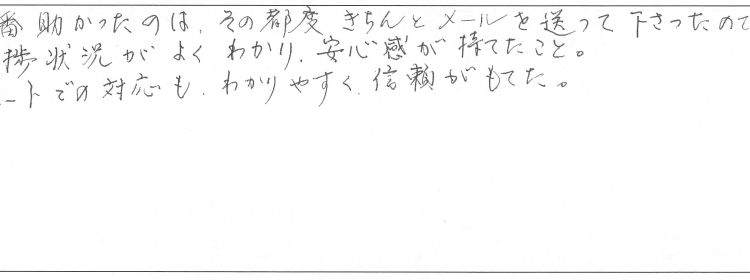 番助かったのは、その都度きちんとメールを送って下さったので
捗状況がよくわかり、安心感が持てたこと。
ートでの対応も、わかりやすく、信頼がもてた。